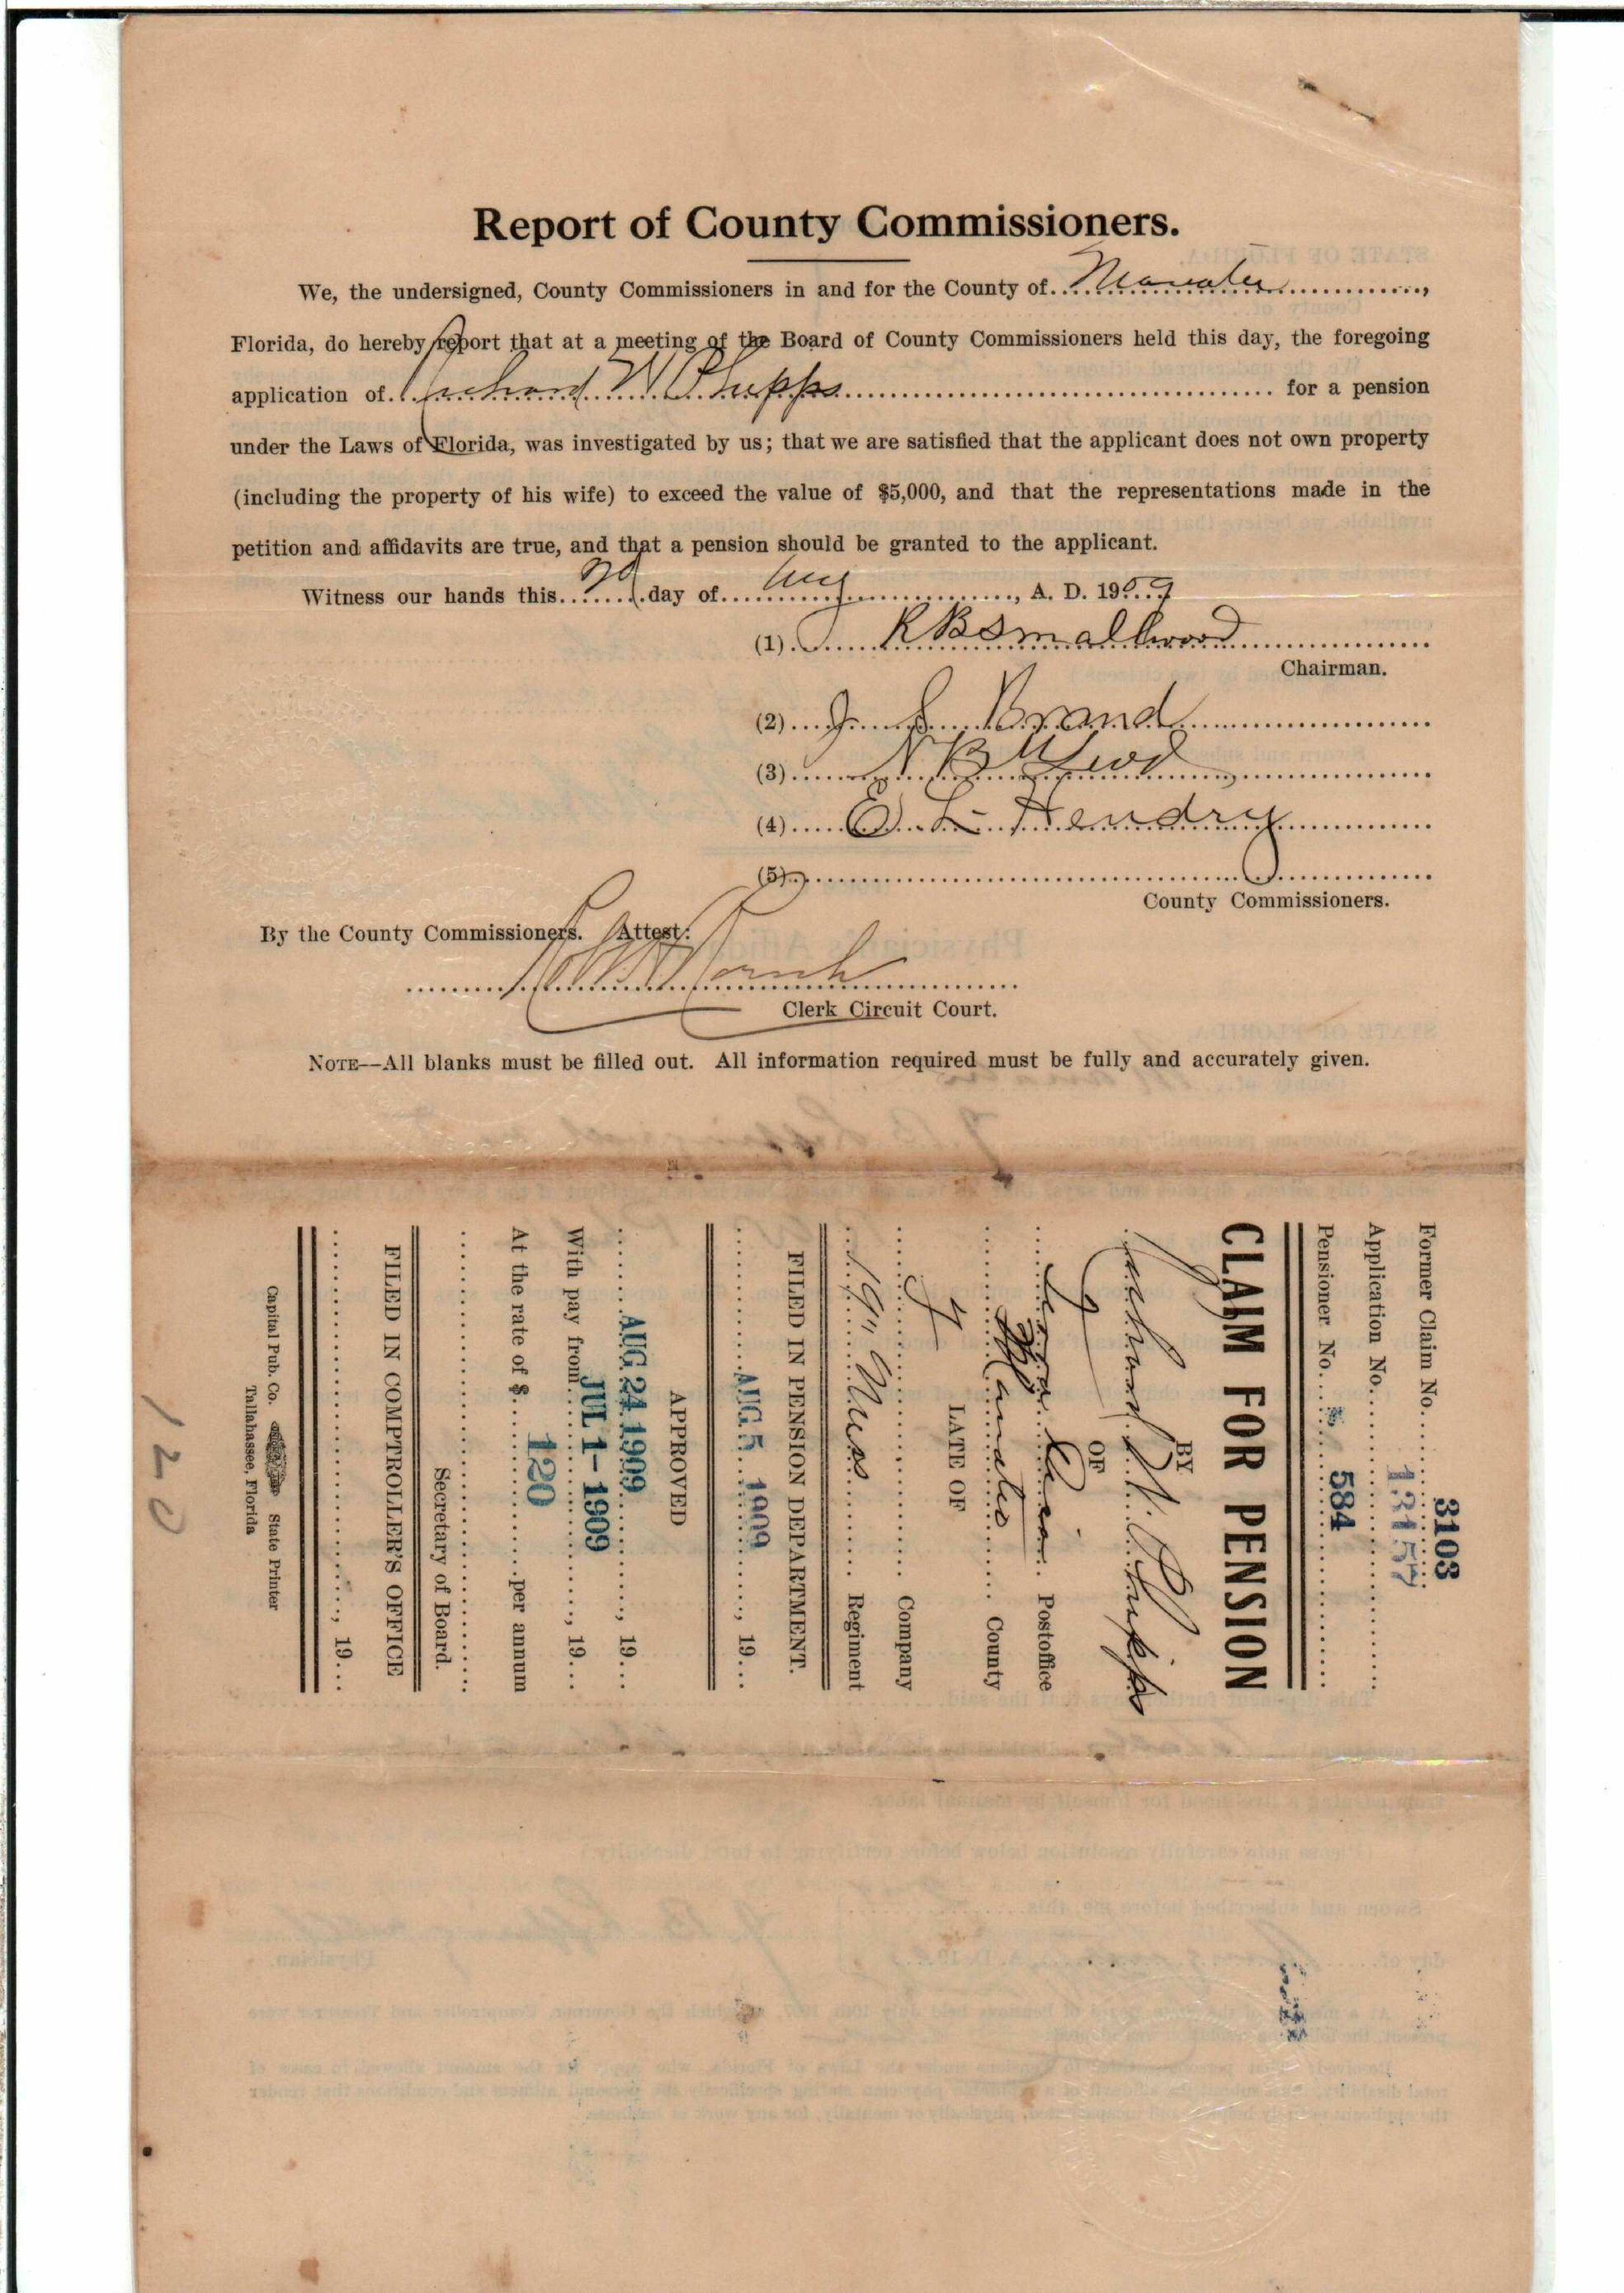 Report of County Commissioners.
We, the undersigned, County Commissioners in and for the County of Manatee,
Florida, do hereby report that at a meeting of the Board of County Commissioners held this day, the foregoing
application of Richard W Phipps for a pension
under the Laws of Florida, was investigated by us; that we are satisfied that the applicant does not own property
(including the property of his wife) to exceed the value of $5,000, and that the representations made in the
petition and affidavits are true, and that a pension should be granted to the applicant.
Witness our hands this day of Aug, A. D. 1909
(1) R B Smallwood
Chairman.
(2) J S Brand
(3) N B
(4) E L Hendry
(5)
County Commissioners.
By the County Commissioners. Attest:
Clerk Circuit Court.
NOTE—All blanks must be filled out. All information required must be fully and accurately given.
Former Claim No. 3103
Application No. 13157
Pensioner No. 584
CLAIM FOR PENSION
BY
Richard W. Phipps
OF
Postoffice
Manatee County
LATE OF
Company
19" Miss Regiment
FILED IN PENSION DEPARTMENT.
AUG 5 1909, 19
APPROVED
AUG 24 1909, 19
With pay from JUL 1-1909, 19
At the rate of $ 120 per annum
Secretary of Board.
FILED IN COMPTROLLER'S OFFICE
, 19
Capital Pub. Co. State Printer
Tallahassee, Florida
120